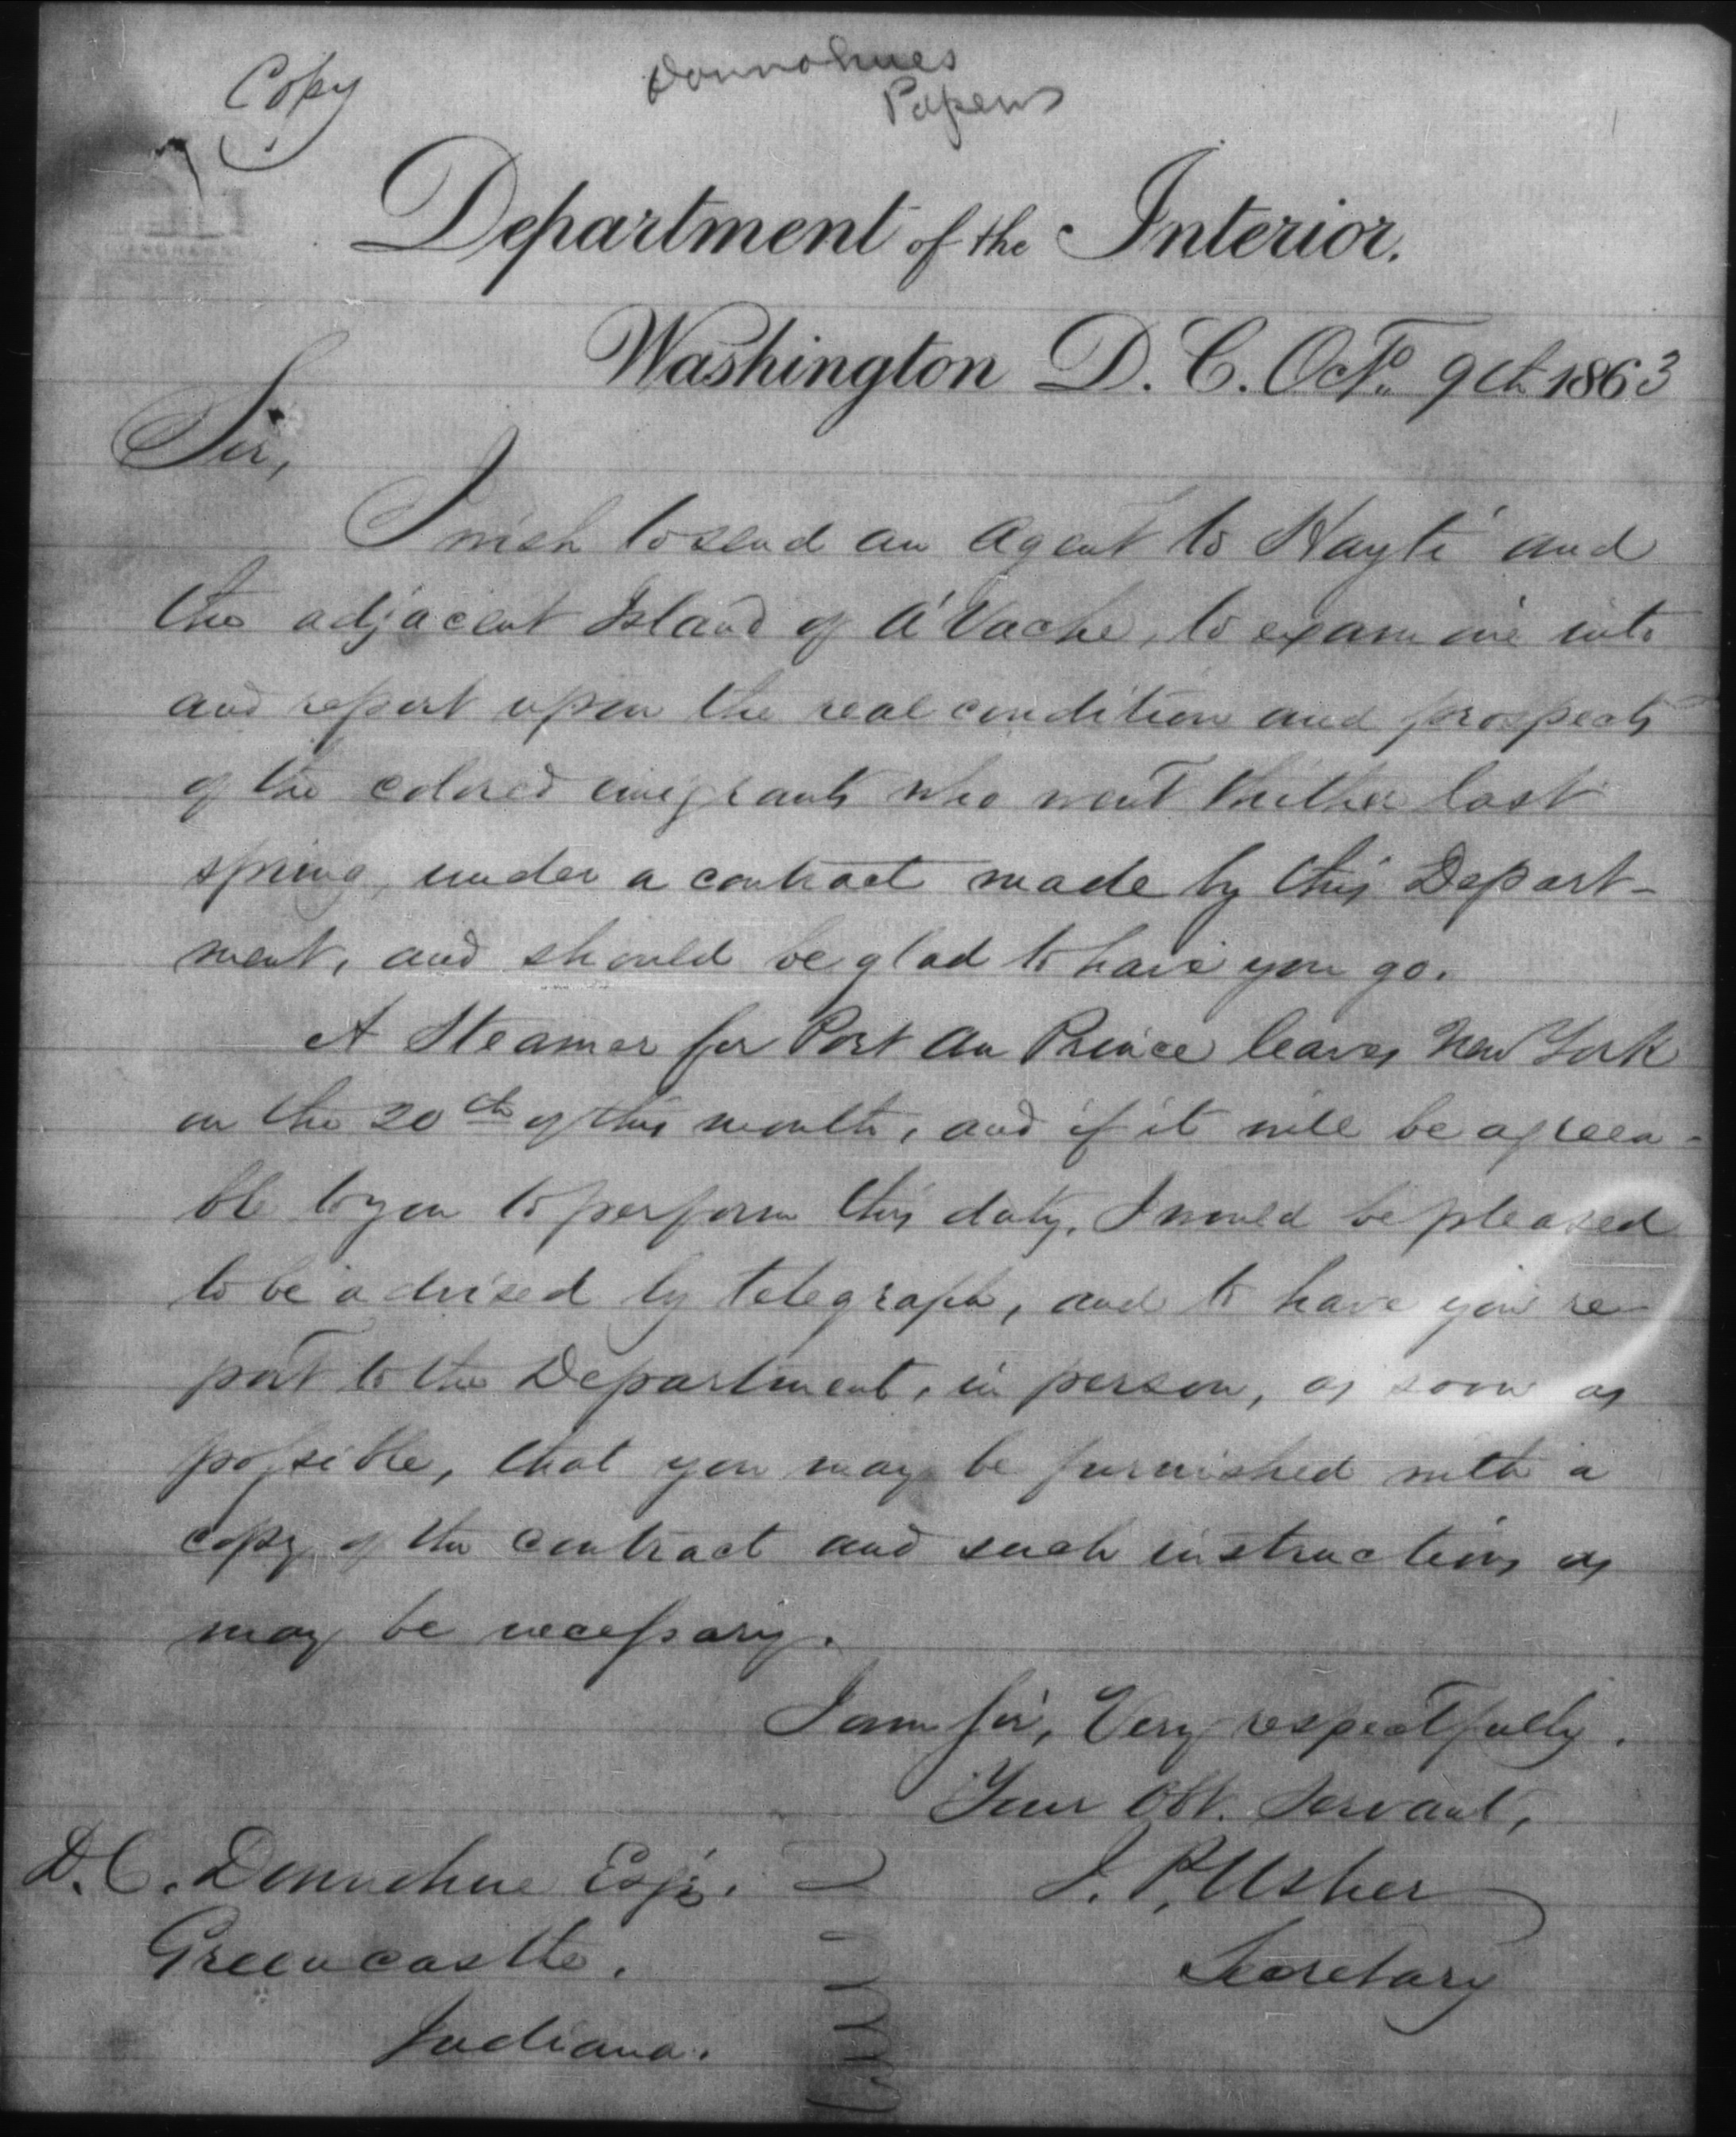 Copy
Donnohues
Papers
Department of the Interior.
Washington D. C. Octo. 9th 1863
Sir,
I wish to send an agent to Hayti and
the adjacent Island of A'Vache, to examine into
and report upon the real condition and prospects
of the colored emigrants who went thither last
spring, under a contract made by this Depart-
ment, and should be glad to have you go.
A Steamer for Port au Prince leaves New York
on the 20th of this month, and if it will be agreea-
ble to you to perform this duty, I would be pleased
to be advised by telegraph, and to have you re-
port to the Department, in person, as soon as
possible, that you may be furnished with a
copy of the contract and such instructions as
may be necessary.
I am Sir, Very respectfully.
Your Obt. Servant,
D. C. Donnohue Esqr.
J. P. Usher
Greencastle.
Secretary
Indiana.